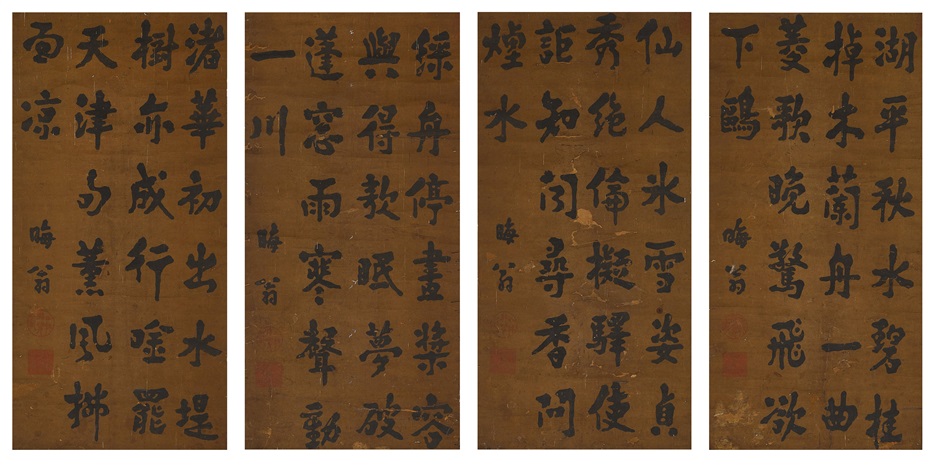 湖平秋水碧桂
棹木蘭舟一曲
菱歌晚驚飛欲
下鷗
晦翁
仙人氷雪姿貞
秀絶倫擬驛使
詎知聞尋香問
煙水
晦翁
綵舟停畫槳容
與得欹眠夢破
蓬窓雨寒聲動
一川
晦翁
渚華初出水堤
樹亦成行吟罷
天津句薰風拂
面凉
晦翁